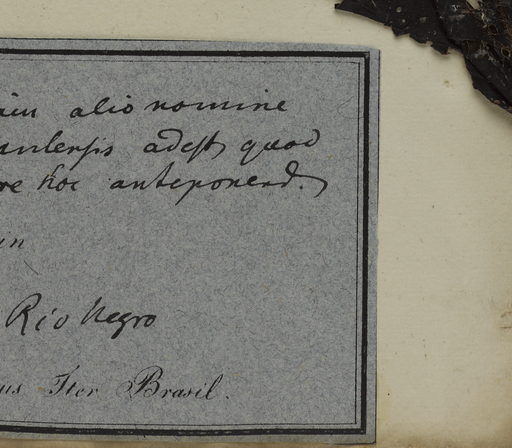 alio nomine
adest quod
re hoc anteponend.
in
Rio Negro
us Iter Brasil.